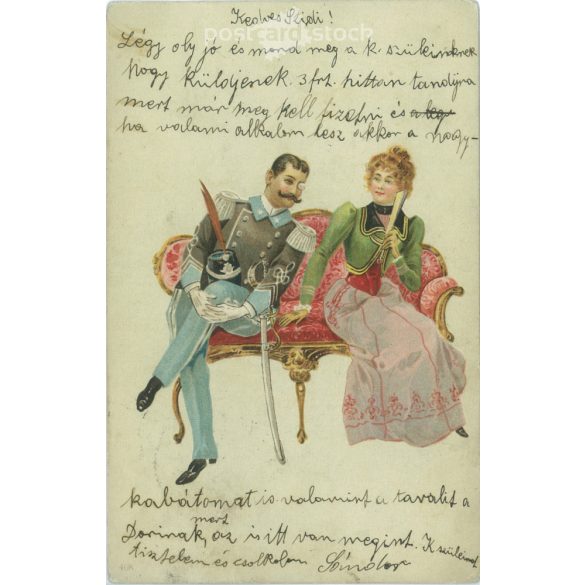 Kedves Szidi!
postcard.stock
Légy oly jó és mond meg a k. szüleimnek
hogy küldjenek. 3 frt. hittan tandijra
mert már meg kell fizetni és a leg
ha valami alkalom lesz akkor a nagy-
kabátomat is valamint a tavalit a
mert
Dorinak, az is itt van megint. K szüleimet
tisztelem és csolkolom Sándor